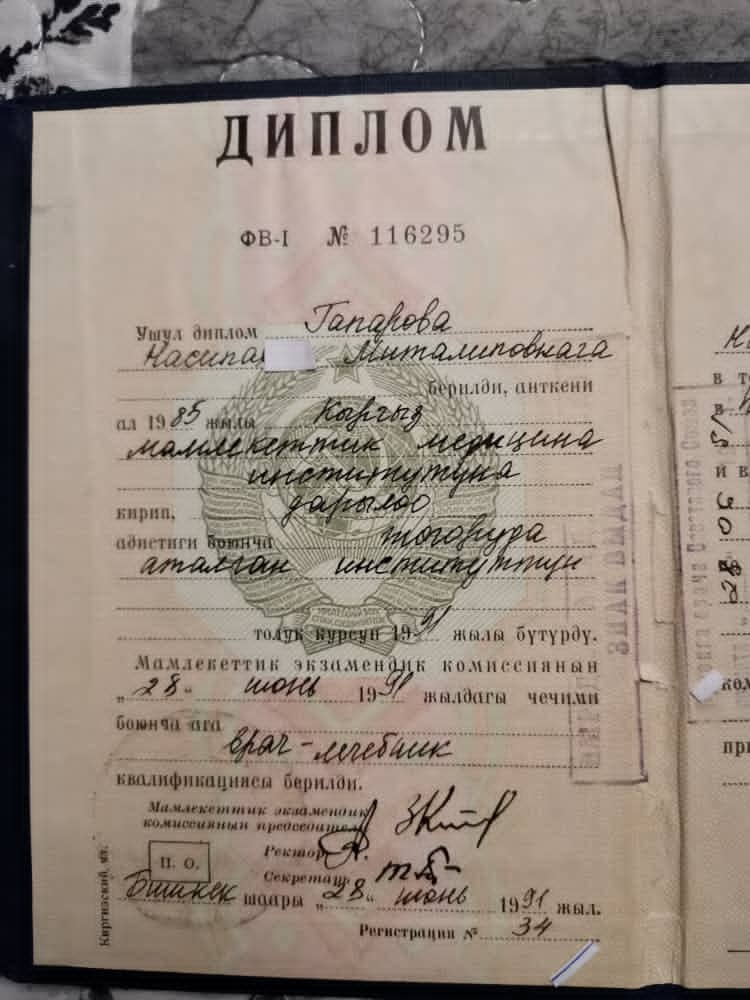 ДИПЛОМ
ФВ-I № 116295
Ушул диплом Гапарова
Насипа Миталиповнага
берилди, анткени
ал 1985 жылы Кыргыз
мамлекеттик медицина
институтуна
кирип, дарылоо
адистиги боюнча жогоруда
аталган институттун
толук курсун 1991 жылы бүтүрдү.
Мамлекеттик экзамендик комиссиянын
„28“ июнь 1991 жылдагы чечими
боюнча ага
врач-лечебник
квалификациясы берилди.
Мамлекеттик экзамендик
комиссиянын председатели
Ректор
Секретарь
П. О.
Бишкек шаары „28“ июнь 1991 жыл.
Регистрация № 34
Киргизский, яз.
ЗНАК ВЫДАН
врача Советского Союза
в
и в
ком
при